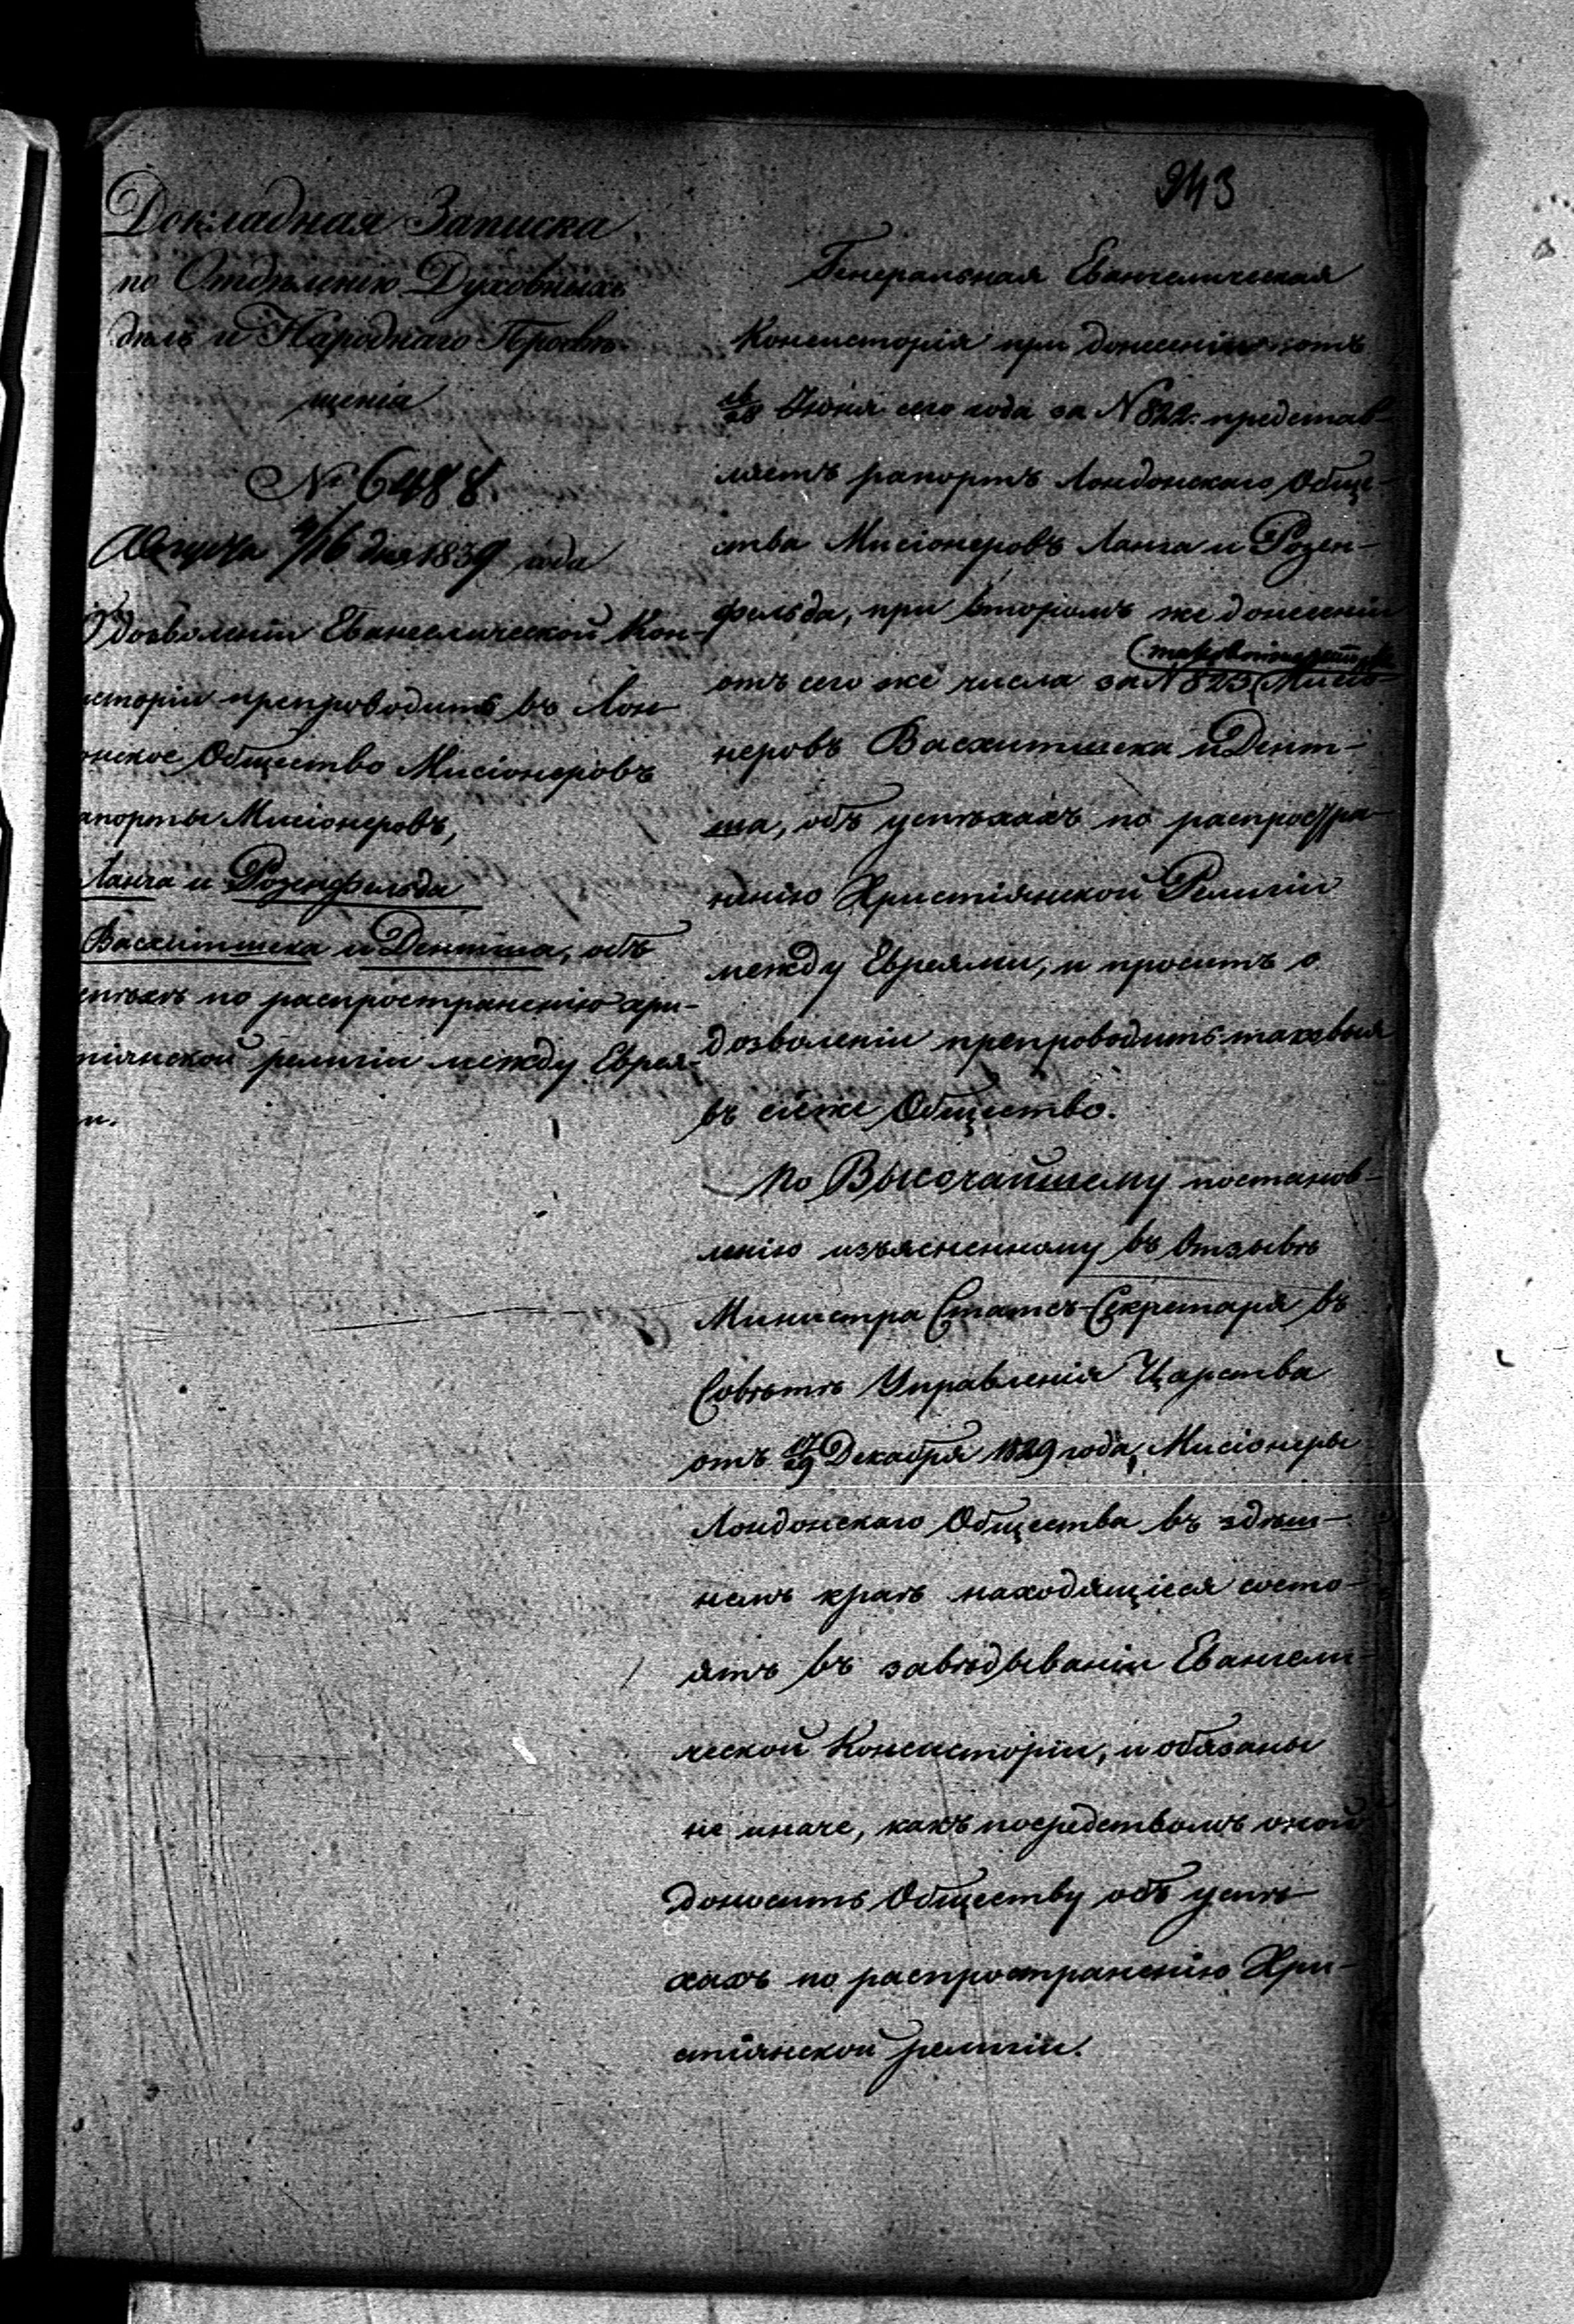 943
Докладная Записка
по Отдѣленію Духовныхъ
дѣлъ и Народнаго Просвѣ-
щенія
№ 6488
Августа 4/16 дня 1839 года
О дозволеніи Евангелической Кон-
исторіи препроводить въ Лон-
онское Общество Мисіонеровъ
апорты Мисіонеровъ,
Ланга и Розенфельда
Васхитшека и Дентша, объ
спѣхахъ по распространенію хри-
тіянской религіи между Еврея-
и.
Генеральная Евангелическая
Консисторія при донесеніи отъ
16/28 Іюня сего года за N 822. представ-
ляетъ рапортъ Лондонскаго Обще-
ства Мисіонеровъ Ланга и Розен-
фельда, при второмъ же донесеніи
отъ сего же числа за N 823 (Мисіо-
неровъ Васхитшека и Дент-
ша, объ успѣхахъ по распростра-
ненію Христіянской Религіи
между Евреями, и проситъ о
дозволеніи препроводить таковыя
въ сіе же Общество.
По Высочайшему постанов-
ленію изъясненному въ Отзывѣ
Министра Статсъ-Секретаря въ
Совѣтѣ Управленія Царства
отъ 17/29 Декабря 1829 года, Мисіонеры
Лондонскаго Общества въ здѣш-
немъ краѣ находящіеся состо-
ятъ въ завѣдываніи Евангели-
ческой Консисторіи, и обязаны
не иначе, какъ посредствомъ оной
доносить Обществу объ успѣ-
хахъ по распространенію Хри-
стіянской религіи.